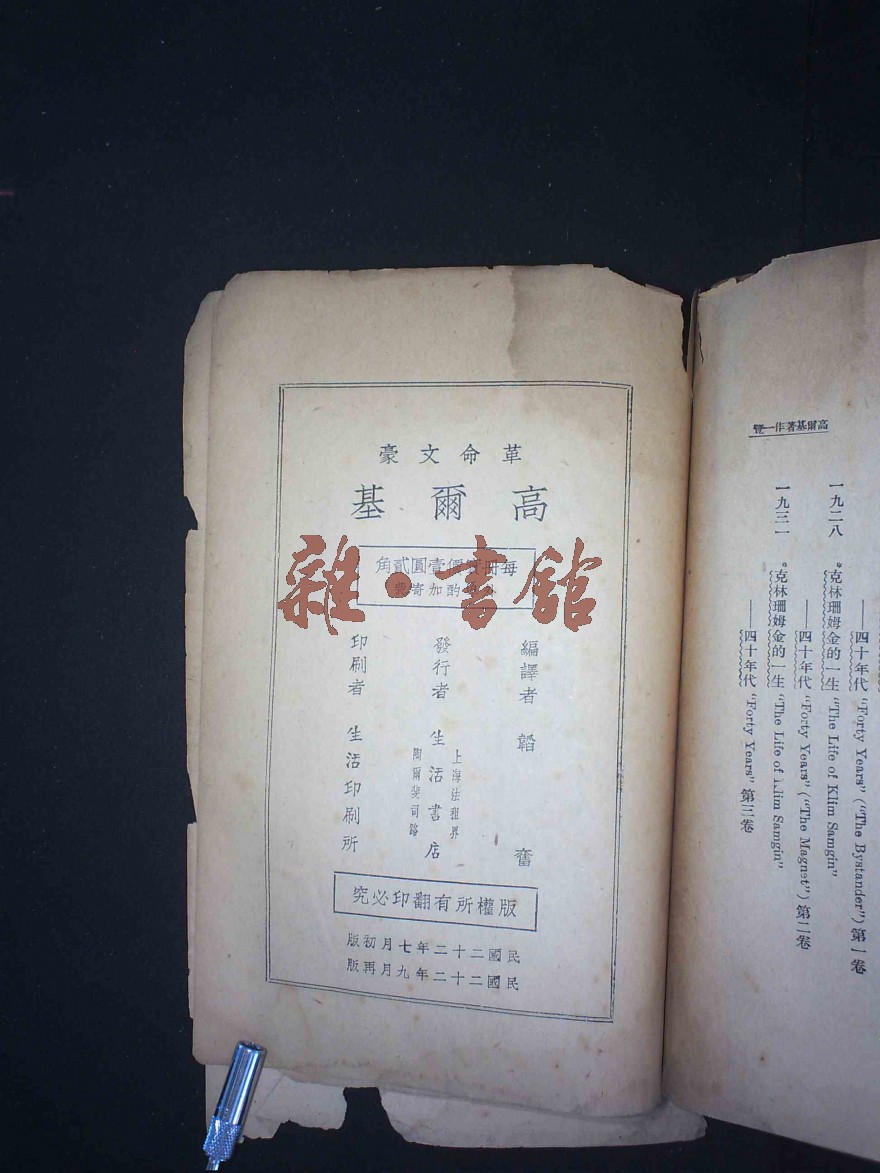 革命文豪
高爾基
每冊實價壹圓貳角
酌加寄費
編譯者 韜奮
發行者 生活書店
上海法租界
陶爾斐司路
印刷者 生活印刷所
版權所有翻印必究
民國二十二年七月初版
民國二十二年九月再版
雜·書館
高爾基著作一覽
——四十年代 "Forty Years" ("The Bystander") 第一卷
一九二八 *克林珊姆金的一生 "The Life of Klim Samgin"
——四十年代 "Forty Years" ("The Magnet") 第二卷
一九三一 *克林珊姆金的一生 "The Life of Klim Samgin"
——四十年代 "Forty Years" 第三卷